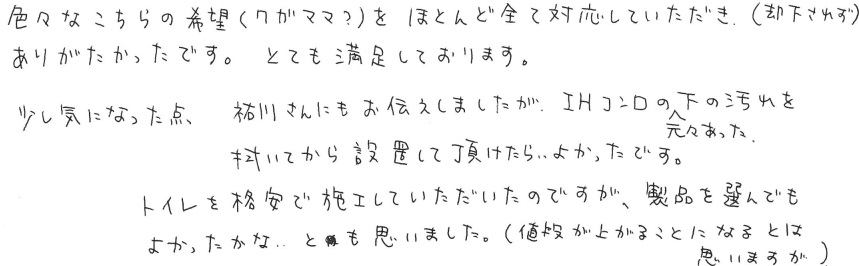 色々なこちらの希望(ワガママ?)を ほとんど全て対応していただき、(却下されず)
ありがたかったです。 とても満足しております。
少し気になった点、 祐川さんにもお伝えしましたが、IHコンロの下の汚れを
元々あった、
拭いてから設置して頂けたら‥よかったです。
トイレを格安で施工していただいたのですが、製品を選んでも
よかったかな‥ とも思いました。(値段が上がることになるとは
思いますが)